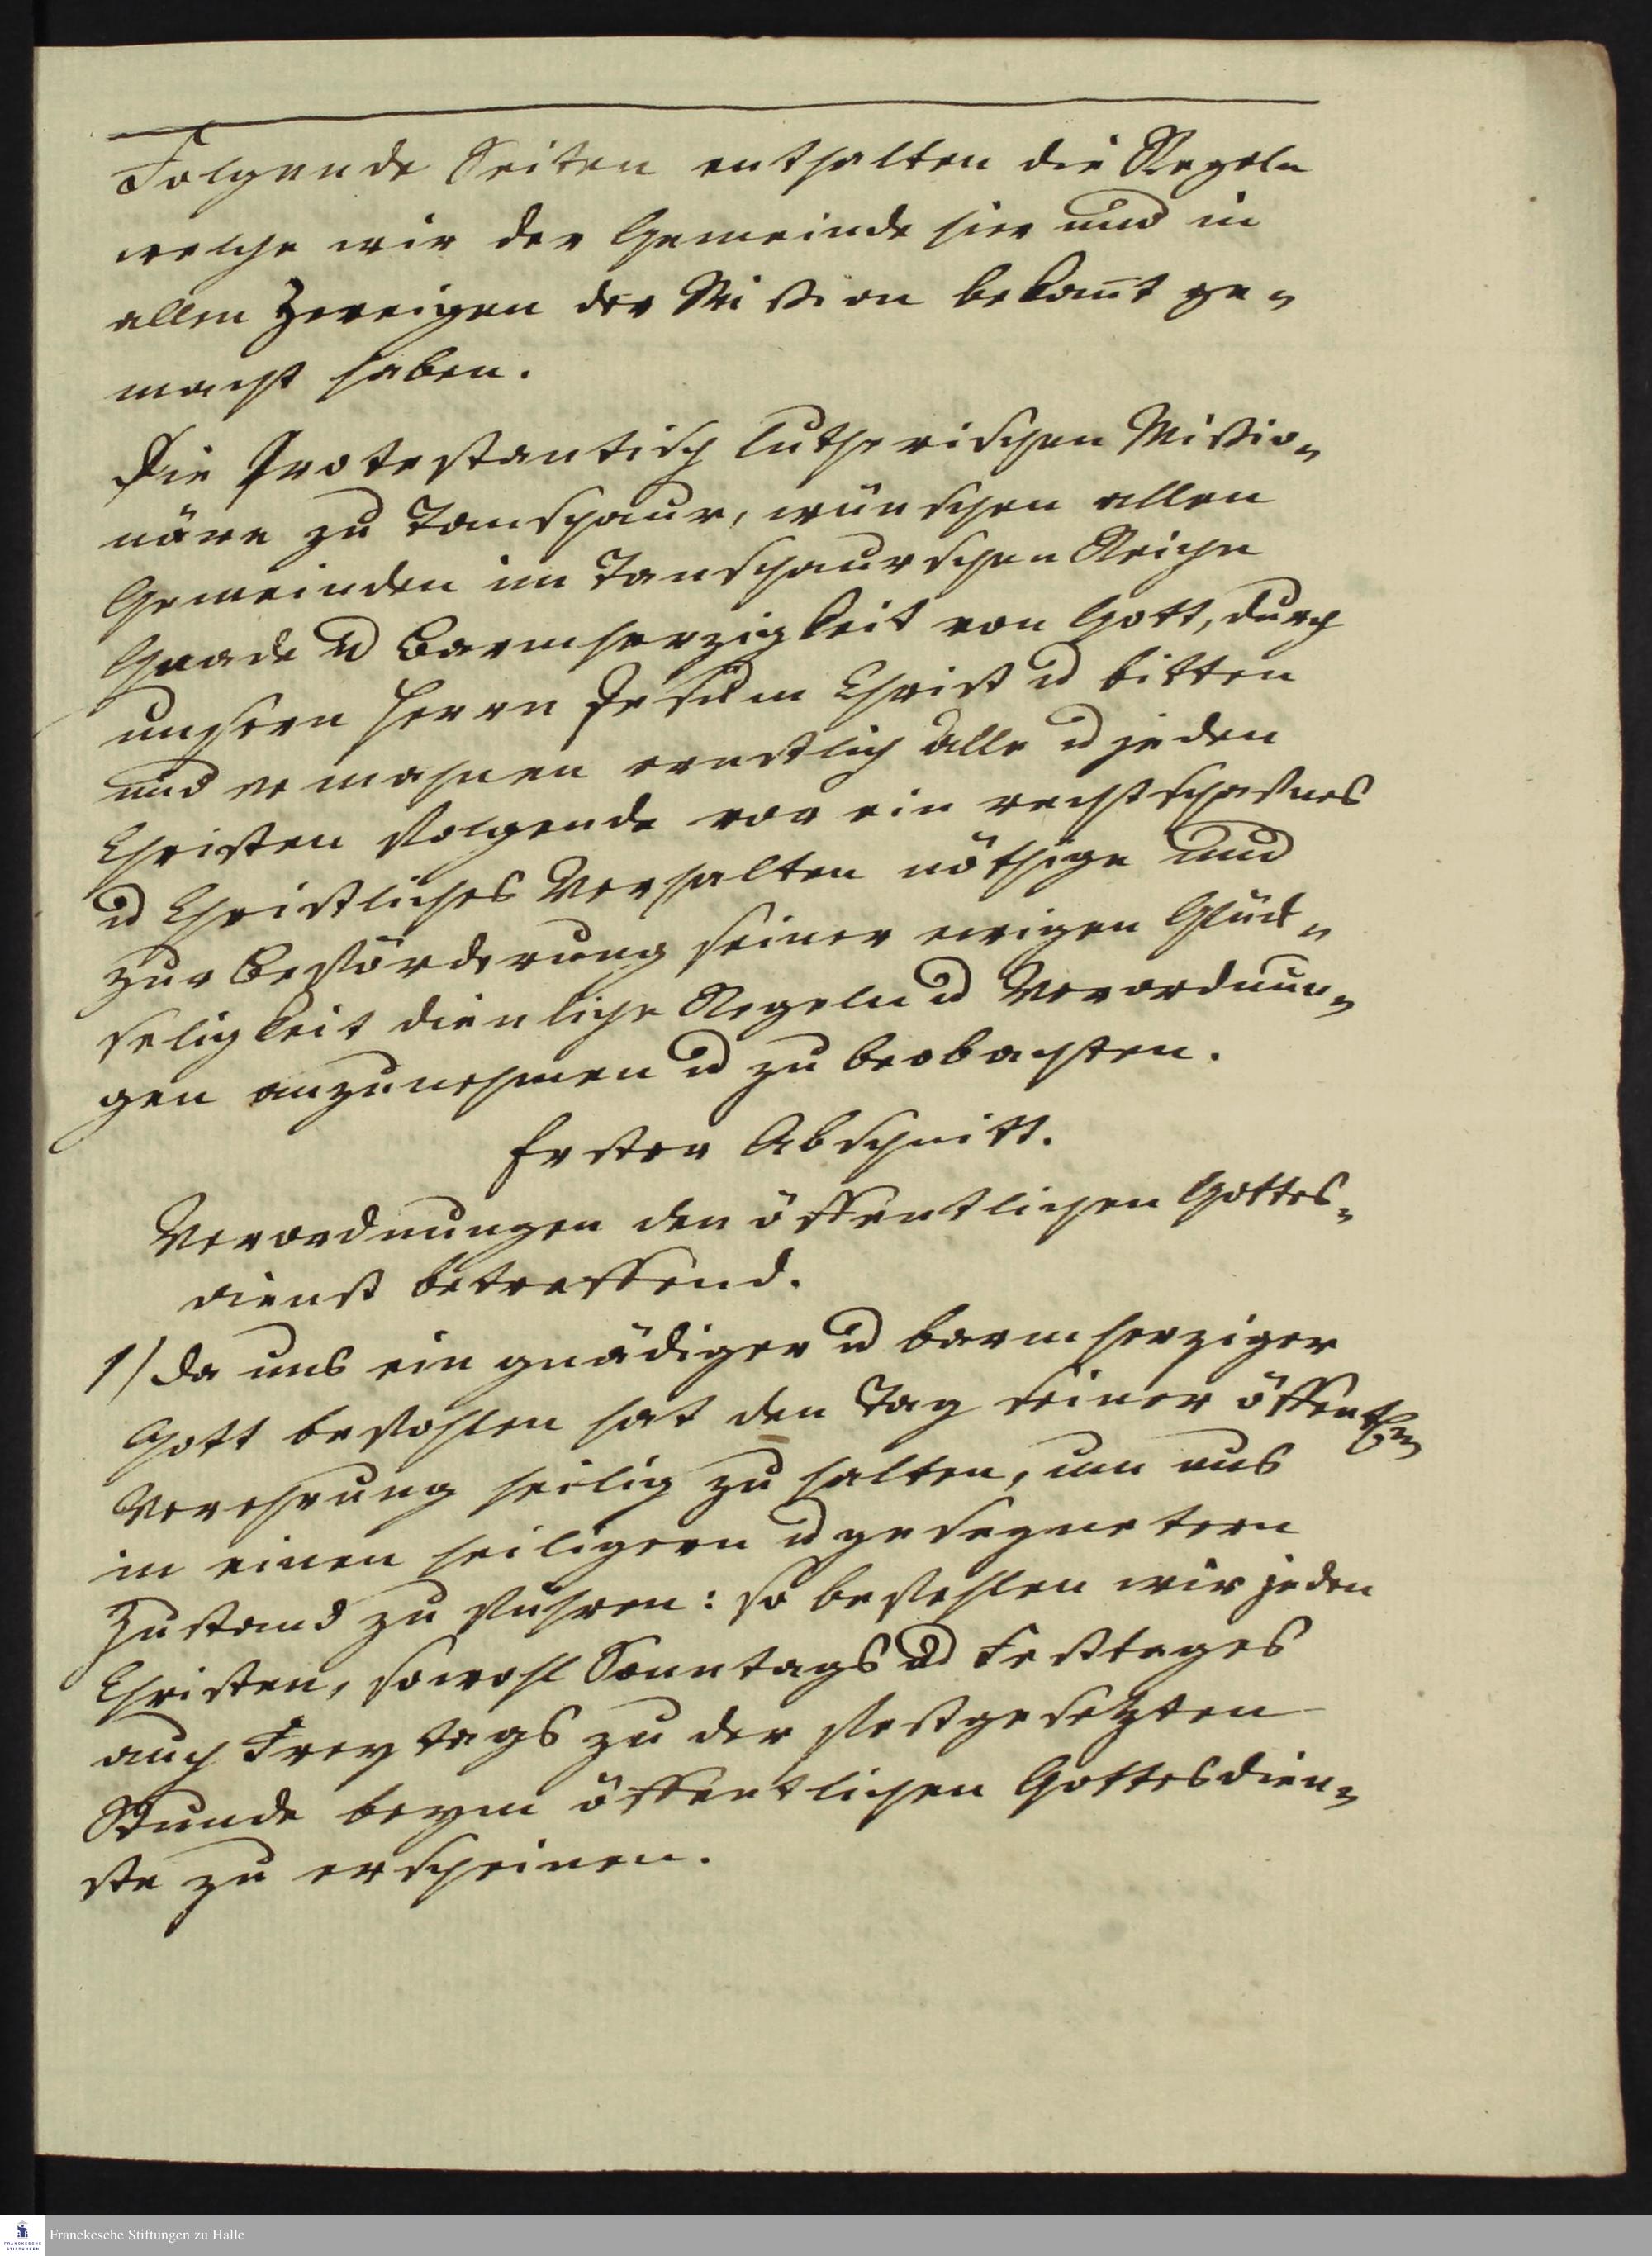 Folgende Seiten enthalten die Regeln
welche wir der Gemeinde hier und in
allen Zweigen der Mißion bekañt ge-
macht haben.
Die Protestantisch lutherischen Mißio-
näre zu Tanschaur, wünschen allen
Gemeinden im Tanschaurschen Reiche
Gnade u Barmherzigkeit von Gott, durch
unsern Herrn Jesum Christ u bitten
und ermahnen ernstlich alle u jeden
Christen folgende vor ein rechtschafnes
u Christliches Verhalten nöthige und
zur Beförderung seiner ewigen Glück-
seligkeit dienliche Regeln u Verordnun-
gen anzunehmen u zu beobachten.
Erster Abschnitt.
Verordnungen den öffentlichen Gottes-
dienst betreffend.
1/ Da uns ein gnädiger u barmherziger
Gott befohlen hat den Tag seiner öffentln
Verehrung heilig zu halten, um uns
in einen heiligern u gesegnetern
Zustand zu führen: so befehlen wir jeden
Christen, sowohl Sonntags u Festtages
auch Freytags zu der festgesetzten
Stunde beym öffentlichen Gottesdien-
ste zu erscheinen.
Franckesche Stiftungen zu Halle